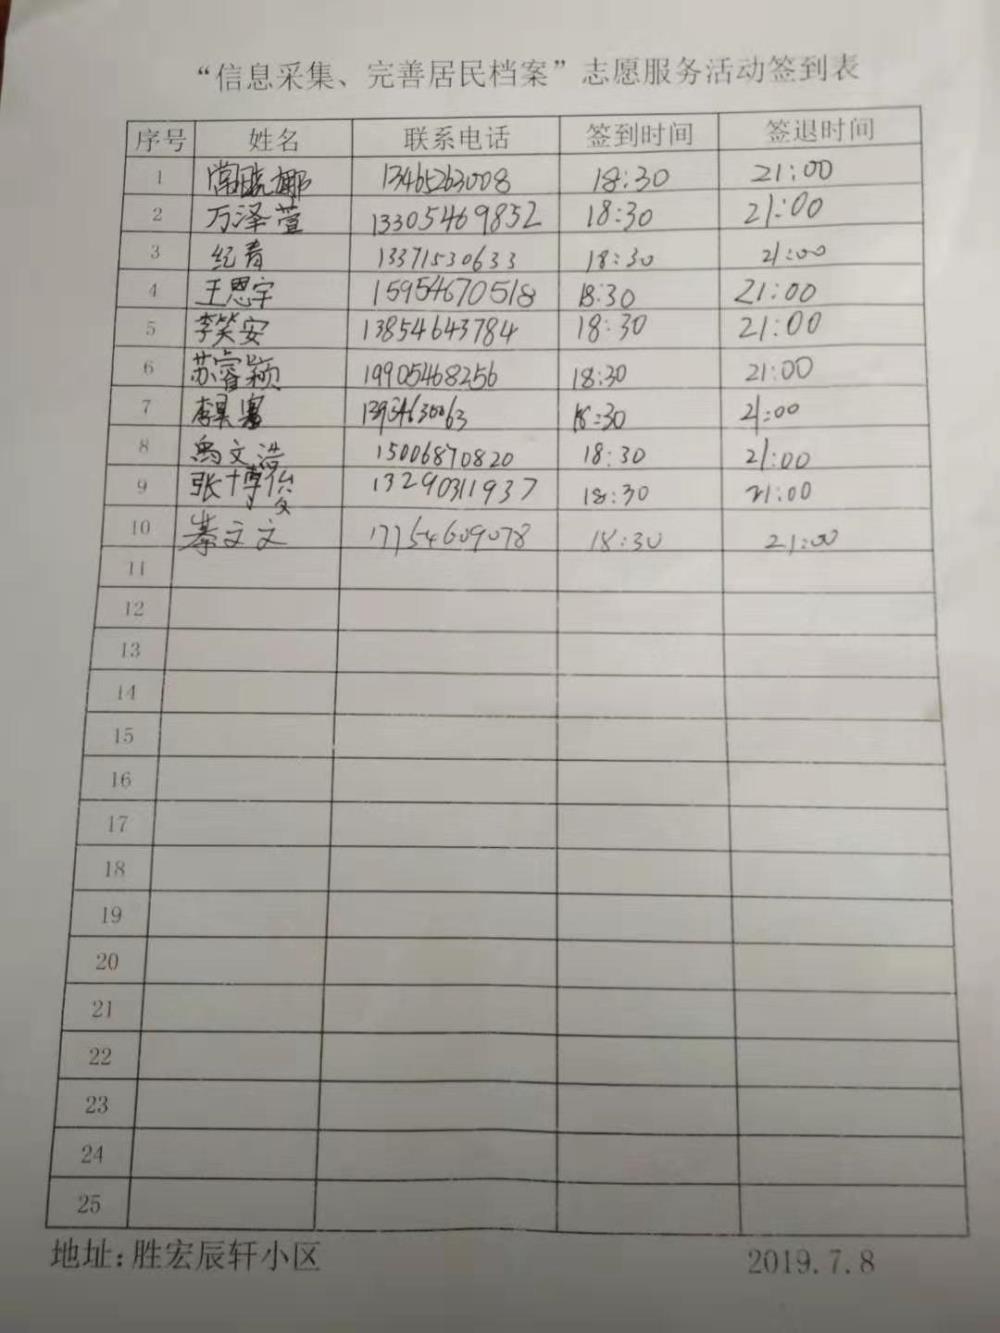 “信息采集、完善居民档案”志愿服务活动签到表
序号 姓名 联系电话 签到时间 签退时间
1 常晓娜 13465263008 18:30 21:00
2 万泽萱 13305469852 18:30 21:00
3 纪青 13371530633 18:30 21:00
4 王恩宇 15954670518 18:30 21:00
5 李笑安 13854643784 18:30 21:00
6 苏睿颖 19905468256 18:30 21:00
7 18:30 21:00
8 禹文浩 15006870820 18:30 21:00
9 张博俊 13290311937 18:30 21:00
10 綦文文 17754609078 18:30 21:00
11
12
13
14
15
16
17
18
19
20
21
22
23
24
25
地址:胜宏辰轩小区 2019.7.8